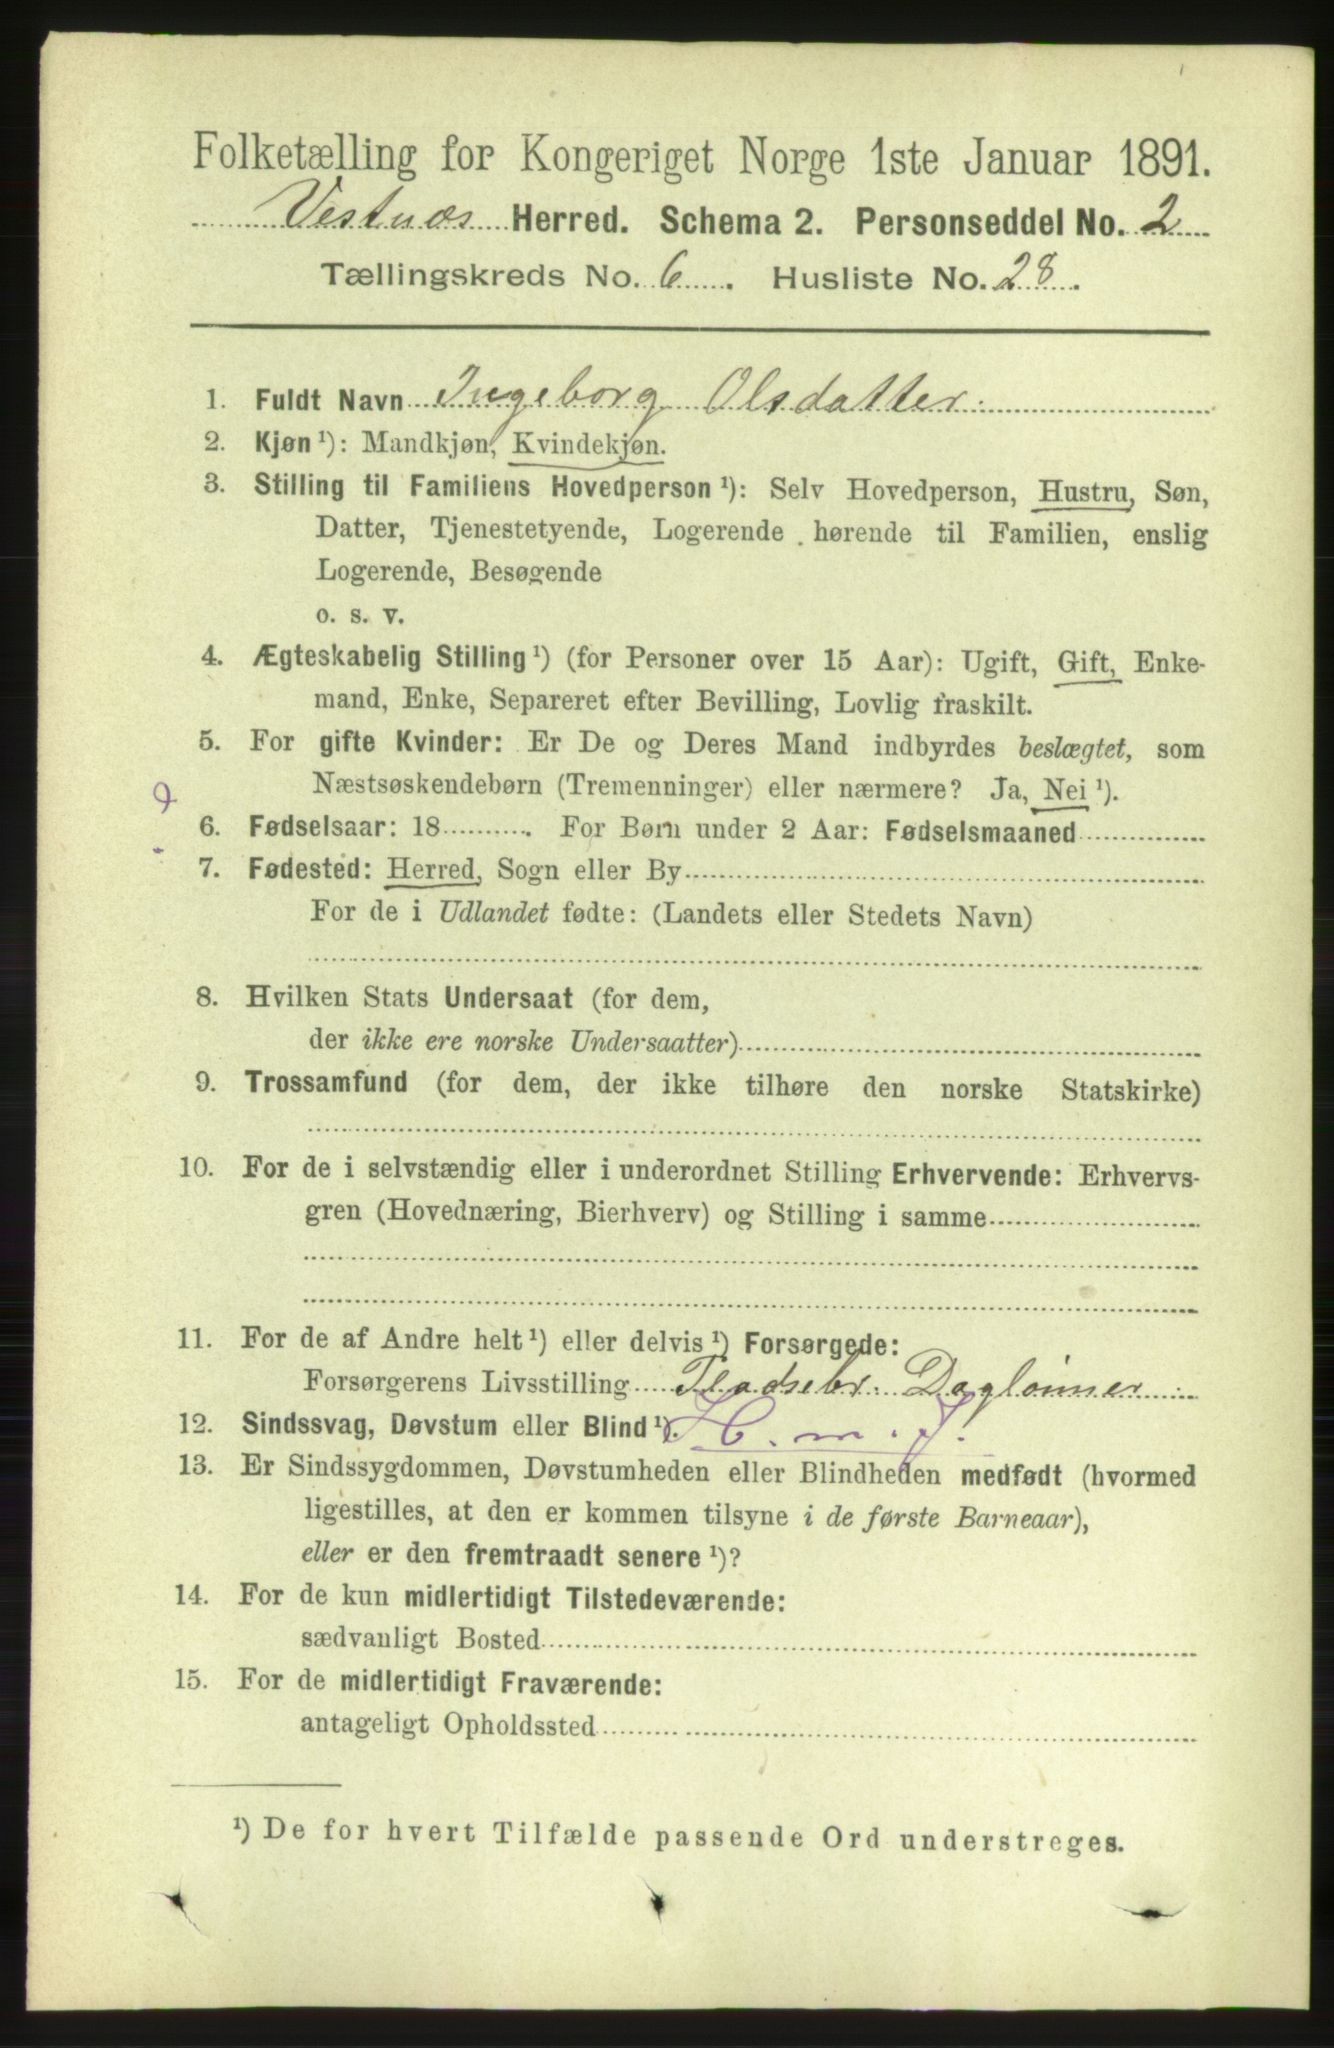 Folketælling for Kongeriget Norge 1ste Januar 1891.
Vestnæs Herred. Schema 2. Personseddel No. 2
Tællingskreds No. 6. Husliste No. 28.
1. Fuldt Navn Ingeborg Olsdatter.
2. Kjøn ¹): Mandkjøn, Kvindekjøn.
3. Stilling til Familiens Hovedperson ¹): Selv Hovedperson, Hustru, Søn,
Datter, Tjenestetyende, Logerende hørende til Familien, enslig
Logerende, Besøgende
o. s. v.
4. Ægteskabelig Stilling ¹) (for Personer over 15 Aar): Ugift, Gift, Enke-
mand, Enke, Separeret efter Bevilling, Lovlig fraskilt.
5. For gifte Kvinder: Er De og Deres Mand indbyrdes beslægtet, som
Næstsøskendebørn (Tremenninger) eller nærmere? Ja, Nei ¹).
6. Fødselsaar: 18 . For Børn under 2 Aar: Fødselsmaaned
7. Fødested: Herred, Sogn eller By
For de i Udlandet fødte: (Landets eller Stedets Navn)
8. Hvilken Stats Undersaat (for dem,
der ikke ere norske Undersaatter)
9. Trossamfund (for dem, der ikke tilhøre den norske Statskirke)
10. For de i selvstændig eller i underordnet Stilling Erhvervende: Erhvervs-
gren (Hovednæring, Bierhverv) og Stilling i samme
11. For de af Andre helt ¹) eller delvis ¹) Forsørgede:
Forsørgerens Livsstilling Pladsebr. Daglønner
12. Sindssvag, Døvstum eller Blind ¹). H. m. J.
13. Er Sindssygdommen, Døvstumheden eller Blindheden medfødt (hvormed
ligestilles, at den er kommen tilsyne i de første Barneaar),
eller er den fremtraadt senere ¹)?
14. For de kun midlertidigt Tilstedeværende:
sædvanligt Bosted
15. For de midlertidigt Fraværende:
antageligt Opholdssted
¹) De for hvert Tilfælde passende Ord understreges.